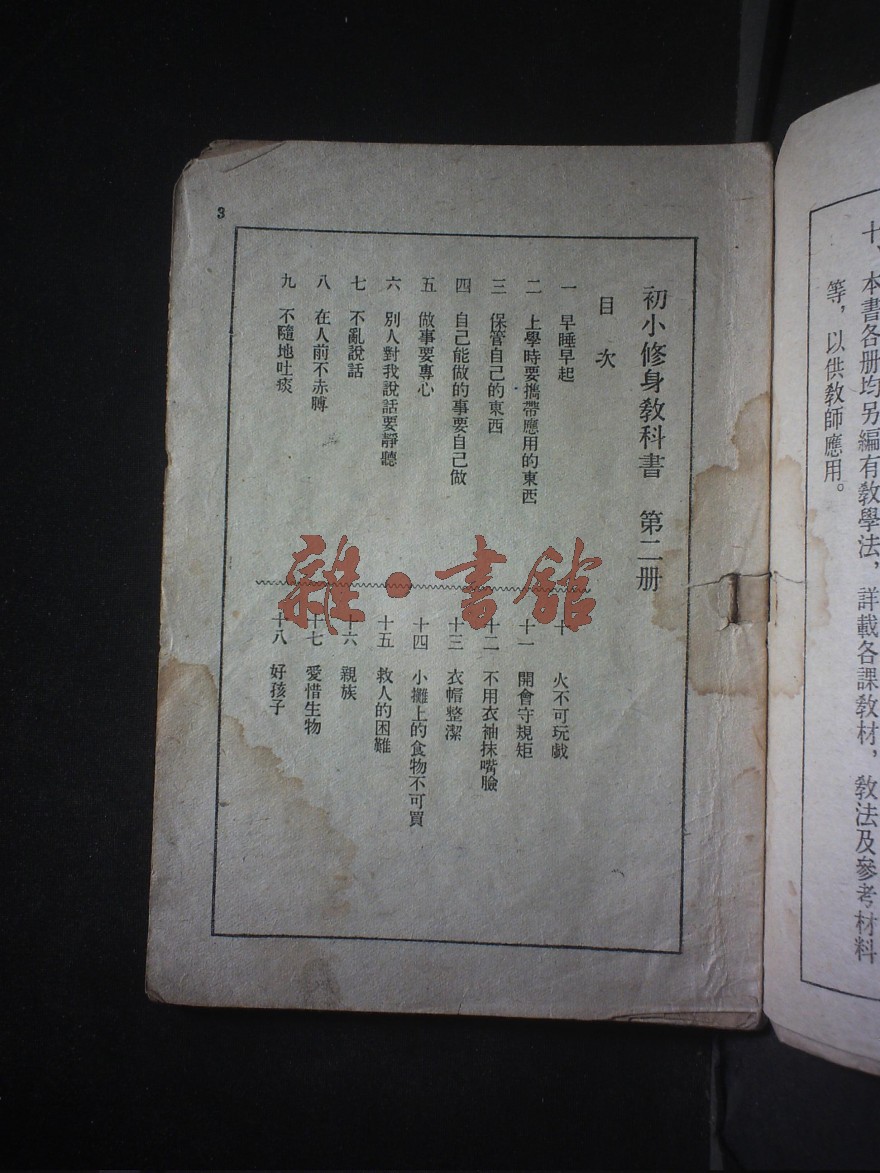 十、本書各册均另編有教學法，詳載各課教材，教法及參考材料
等，以供教師應用。
3
初小修身教科書　第二册
目　次
一　早睡早起
二　上學時要攜帶應用的東西
三　保管自己的東西
四　自己能做的事要自己做
五　做事要專心
六　別人對我說話要靜聽
七　不亂說話
八　在人前不赤膊
九　不隨地吐痰
十　火不可玩戲
十一　開會守規矩
十二　不用衣袖抹嘴臉
十三　衣帽整潔
十四　小攤上的食物不可買
十五　救人的困難
十六　親族
十七　愛惜生物
十八　好孩子
雜·書館